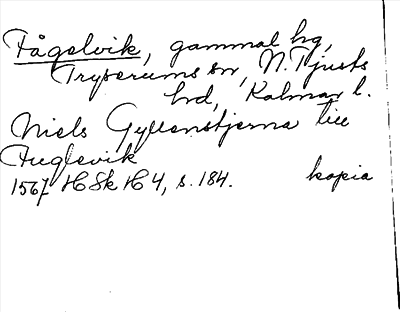 Fågelvik, gammal hg,
Tryserums sn, N. Tjusts
hd, Kalmar l.
Niels Gyllenstjerna till
Fuglevik
1567 HSk H 4, s. 184. kopia